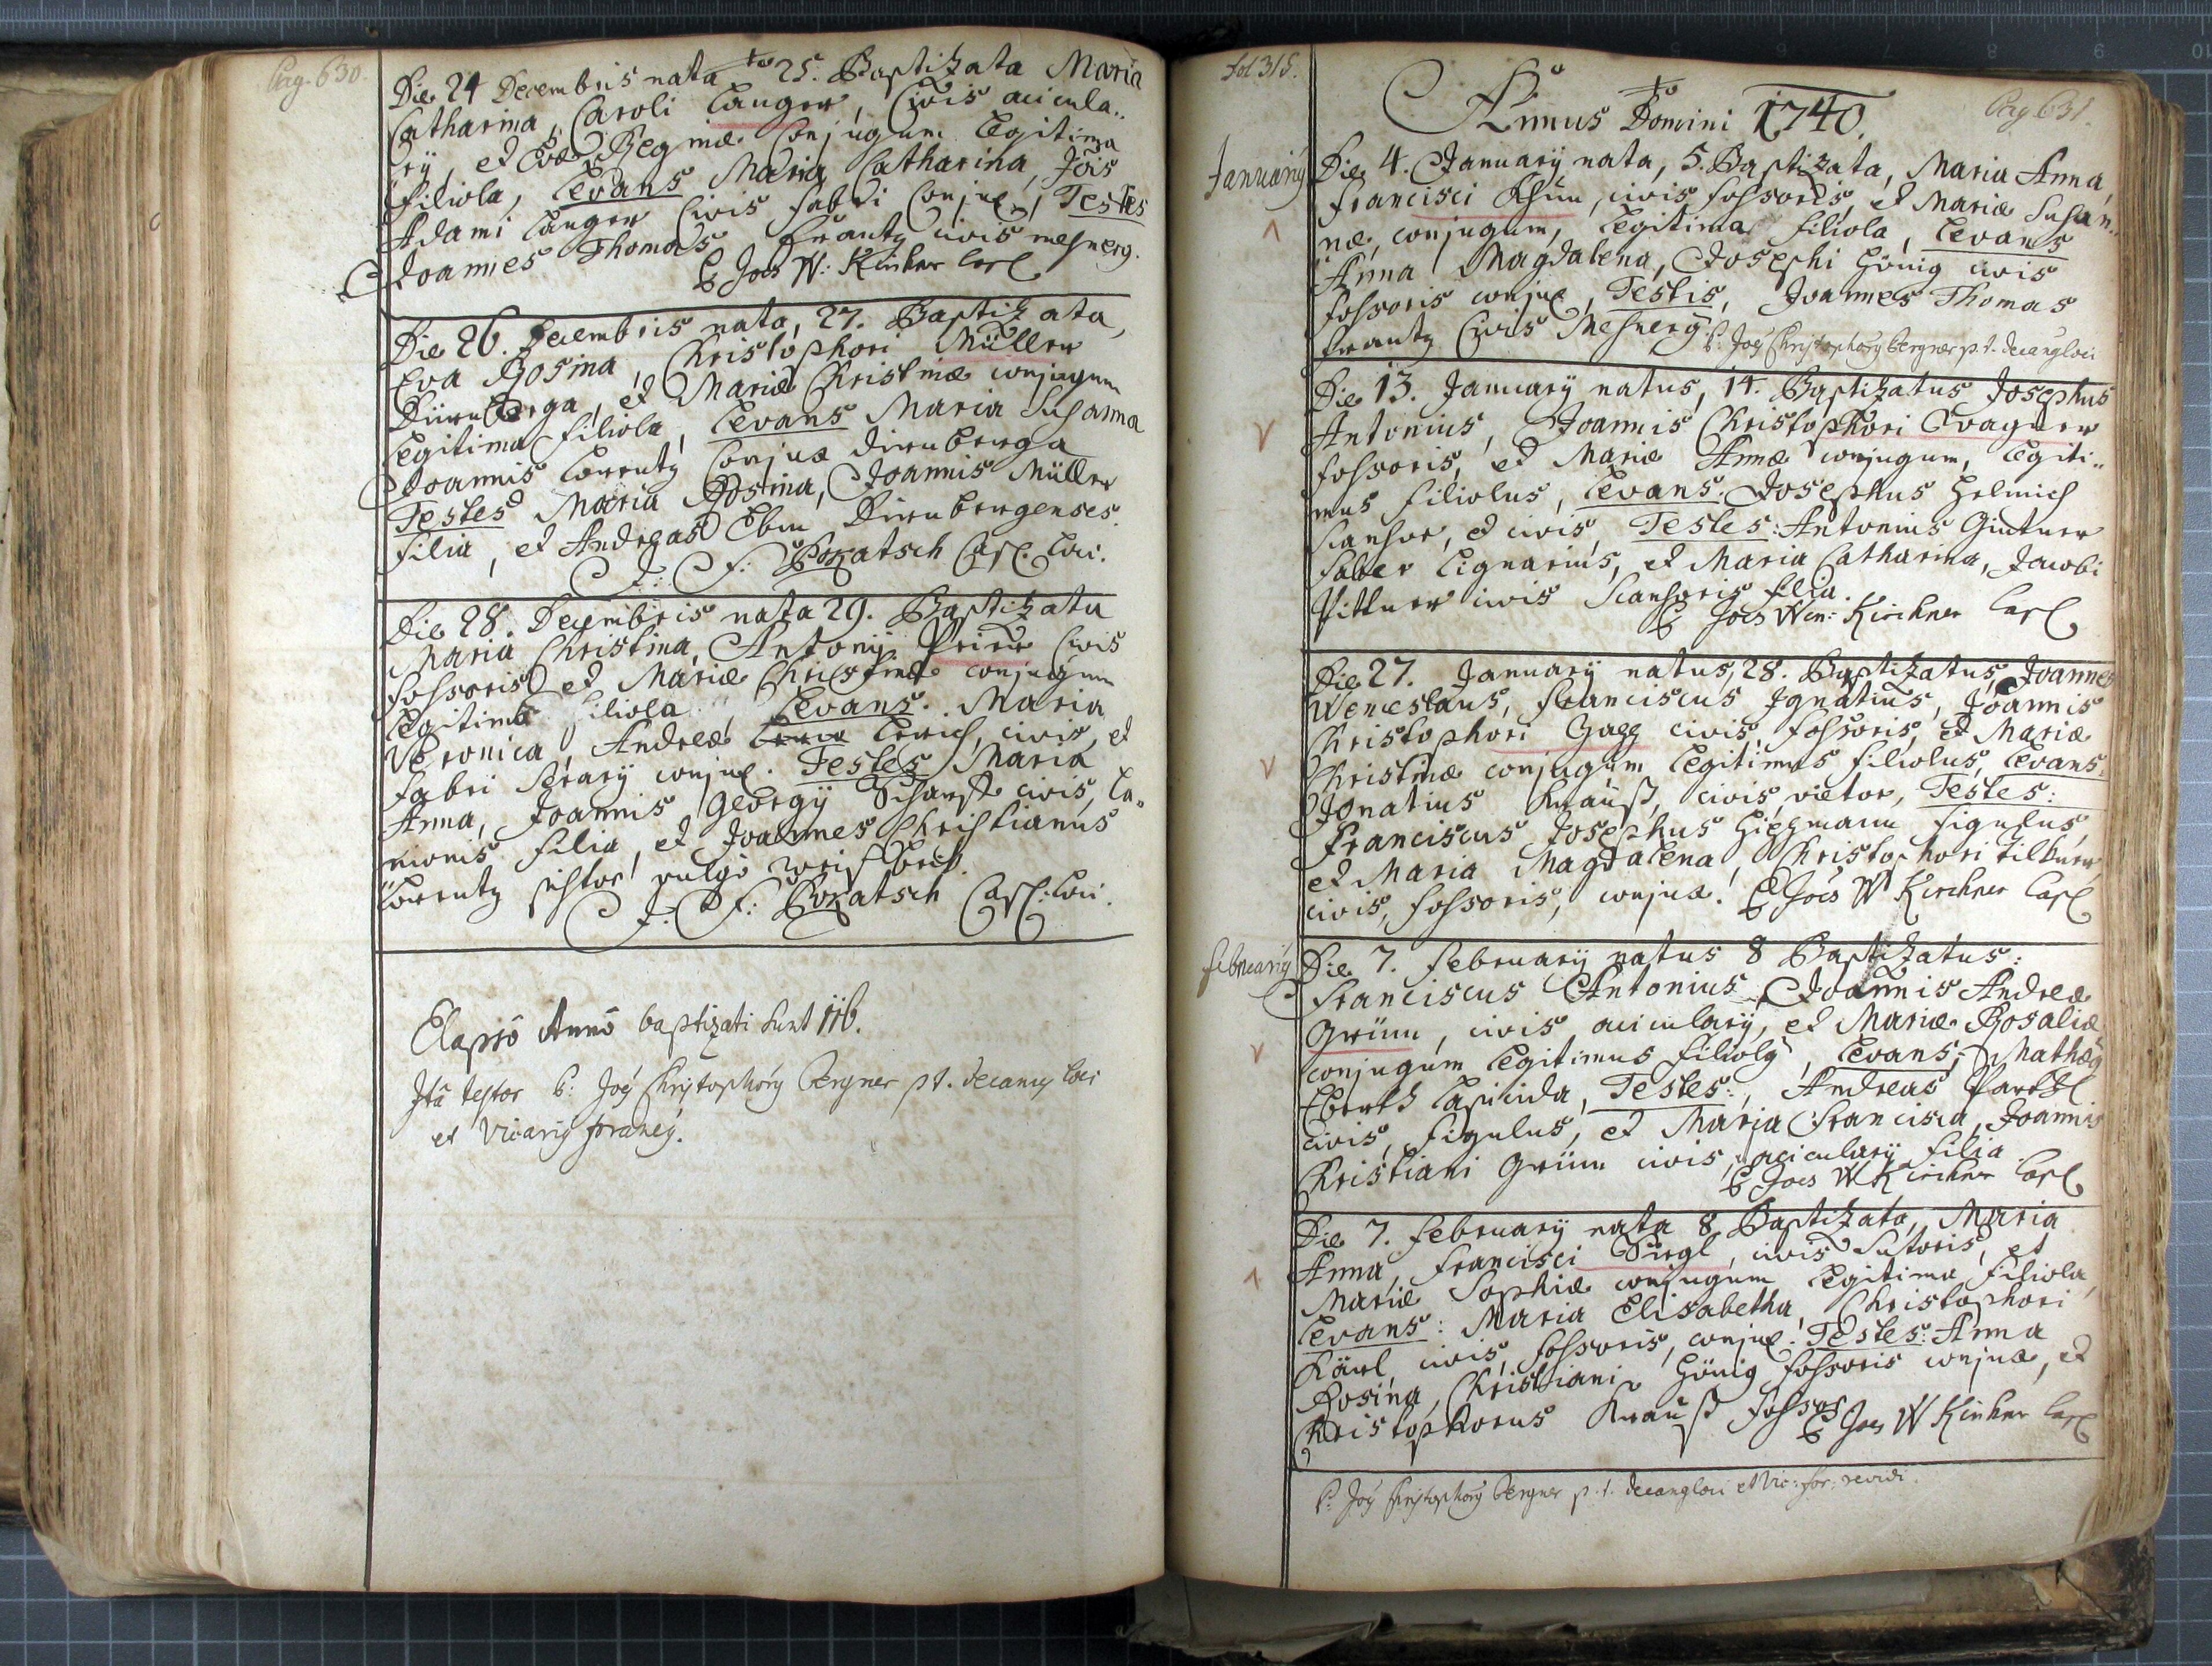 Pag. 630.
Die 24 Decembris nata 25. Baptizata Maria
Catharina, Caroli Langer, Civis acicula..
rÿ, et Evæ Reginæ Conjugum legitima
filiola, Levans Maria Catharina, Jois
Adami Langer Civis fabri Conjux, Testes
Joannes Thomas Frantz civis mesnerg.
P Joes W: Kirchner Capl
Die 26. Decembris nata, 27. Baptizata,
Eva Rosina, Christophori Müller
Dürnberga, et Mariæ Christinæ conjugum
legitima filiola, Levans Maria Susanna
Joannis Lorentz Conjux Dirnberga
Testes Maria Rosina, Joannis Müller
filia, et Andreas Eben Dirnbergenses.
J. F: Bokatsch Capl. Loci.
Die 28. Decembris nata 29. Baptizata
Maria Christina, Antonÿ civis
fossoris et Mariæ Christinæ conjugum
legitima filiola, Levans. Maria
Veronica, Andreæ Lerich, civis, et
fabri serarÿ conjux. Testes Maria
Anna, Joannis Georgÿ civis, la„
nionis filia, et Joannes Christianus
Lorentz pistor vulgò
J. F: Bokatsch Capl: Loci.
Elapsô Annô baptizati sunt 116.
Ità testor P: Joês Christophorg Bergner p t. decanus loci
et Vicarig foraneg.
fol 315.
Annus Domini 1740.
Pag 631.
Januarÿ
Die 4. Januarÿ nata, 5. Baptizata, Maria Anna,
Francisci Khün, civis fossoris, et Mariæ Susan..
næ, conjugum, legitima filiola, Levans
Anna Magdalena, Josephi Hönig civis
fossoris conjux, Testis, Joannes Thomas
Frantz Civis Mesnerg. P: Joês Christophorg Bergner p.t. decang loci
Die 13. Januarÿ natus, 14. Baptizatus Josephus
Antonius, Joannis Christophori Wagner
fossoris, et Mariæ Annæ conjugum, legiti..
mus filiolus, Levans. Josephus Helmich
scansor, et civis, Testes: Antonius Güntner
faber lignarius, et Maria Catharina, Jacobi
Pittner civis scansoris filia.
P Joes Wen: Kirchner Capl
Die 27. Januarÿ natus, 28. Baptizatus, Joannes
Wenceslaus, Franciscus Ignatius, Joannis
Christophori civis fossoris, et Mariæ
Christinæ conjugum legitimus filiolus, Levans,
Ignatius Krauß, civis vietor, Testes:
Franciscus Josephus figulus,
et Maria Magdalena, Christophori
civis, fossoris, conjux. P Joes W Kirchner Capl
Februarÿ
Die 7. Februarÿ natus 8 Baptizatus:
Franciscus Antonius Joannis Andreæ
Grünn, civis acicularÿ, et Mariæ Rosaliæ
conjugum legitimus filiolg, Levans, Mathæg
Eberth lapicida, Testes:, Andreas Partzl
civis, figulus, et Maria Francisca, Joannis
Christiani Grünn civis, acicularÿ filia.
P Joes W Kirchner Capl
Die 7. Februarÿ nata 8 Baptizata, Maria
Anna, Francisci civis sutoris, et
Mariæ Sophiæ conjugum legitima filiola,
Levans: Maria Elisabetha, Christophori
civis fossoris, conjux. Testes: Anna
Rosina, Christiani Hönig fossoris conjux, et
Christophorus Krauß fossor
P Joes W Kirchner Capl
P: Joês Christophorg Bergner p. t. decang loci et Vic: for: revidi.